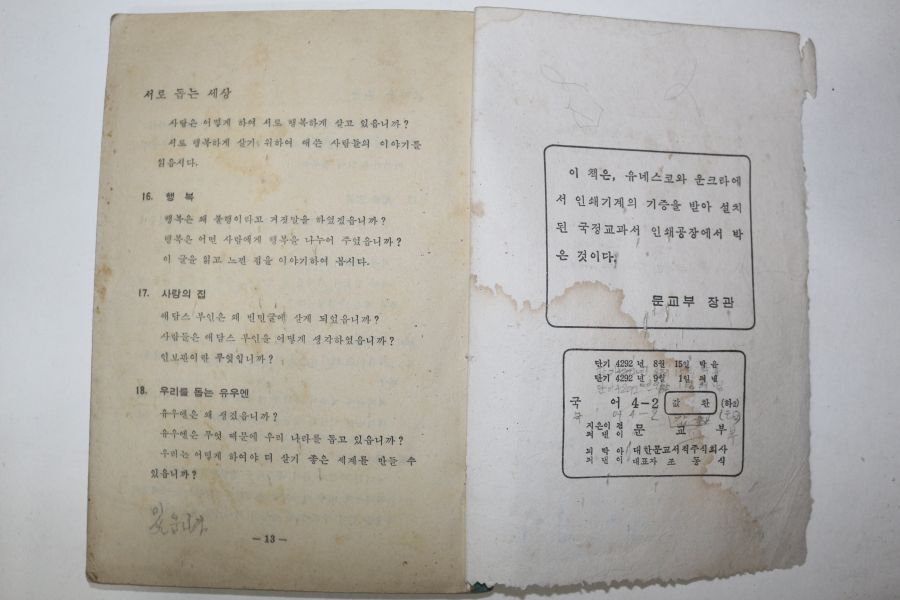 서로 돕는 세상
사람은 어떻게 하여 서로 행복하게 살고 있읍니까?
서로 행복하게 살기 위하여 애쓰는 사람들의 이야기를
읽읍시다.
16. 행 복
행복은 왜 불행이라고 거짓말을 하였겠읍니까?
행복은 어떤 사람에게 행복을 나누어 주었읍니까?
이 글을 읽고 느낀 점을 이야기하여 봅시다.
17. 사랑의 집
애덤스 부인은 왜 빈민굴에 살게 되었읍니까?
사람들은 애덤스 부인을 어떻게 생각하였읍니까?
인보관이란 무엇입니까?
18. 우리를 돕는 유우엔
유우엔은 왜 생겼읍니까?
유우엔은 무엇 때문에 우리 나라를 돕고 있읍니까?
우리는 어떻게 하여야 더 살기 좋은 세계를 만들 수
있읍니까?
— 13 —
이 책은, 유네스코와 운크라에
서 인쇄기계의 기증을 받아 설치
된 국정교과서 인쇄공장에서 박
은 것이다.
문교부 장관
단기 4292 년 8월 15일 박음
단기 4292 년 9월 1일 펴냄
국 어 4-2 값 환 (하2)
지은이 겸
펴낸이 문 교 부
박아 대한문교서적주식회사
펴낸이 대표자 조 동 식